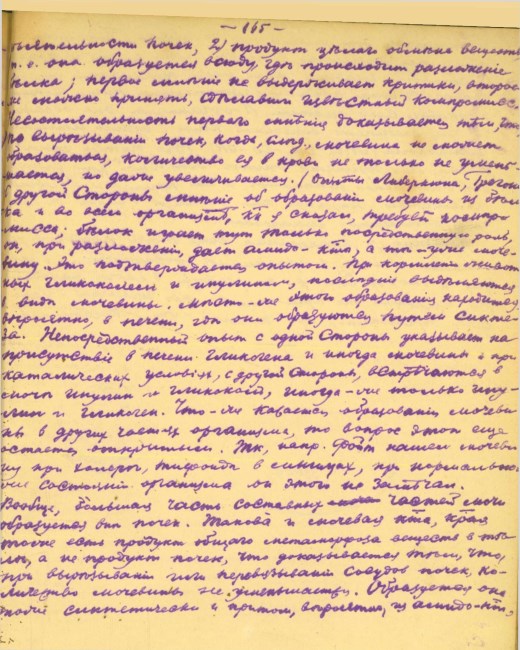 — 165 —
почек, 2) продукт цѣлаго обмѣна веществ
т. е. она образуется всюду, гдѣ происходит разложение
бѣлка; первое мнѣние не выдерживает критики, второе
можно принять, сдѣлавши извѣстный компромисс.
Несостоятельность первого мнѣния доказывается тѣм, что
по вырѣзывании почек, когда, слѣд., мочевина не может
образоваться, количество ея в крови не только не умень-
шается, но даже увеличивается. (Опыты
С другой стороны мнѣние об образовании мочевины из бѣл-
ка и во всем организмѣ, как я сказал, требует компро-
мисса; бѣлок играет тут только посредственную роль,
он, при разложении, дает амидо-к-ты, а тѣ уже моче-
вину. Это подтверждается опытом. При кормлении живот-
ных гликоколем и послѣдние выдѣляются
в видѣ мочевины. Мѣсто-же этого образования находится,
вѣроятно, в печени, гдѣ они образуются путем синте-
за. Непосредственный опыт с одной стороны указывает на
присутствие в печени гликогена и иногда мочевины
условиях, с другой стороны, встрѣчаются в
иногда-же только
и гликоген. Что-же касается образования мочеви-
ны в других частях организма, то вопрос этот еще
остается открытым. Так, напр. Фойт нашел мочеви-
ну при холерѣ, в мышцах, при нормальном
же состоянии организма он этого не замѣчал.
Вообще, бóльшая часть составных частей мочи
образуется вне почек. Такова и мочевая к-та, края
тоже есть продукт общаго метаморфоза веществ в тѣ-
лѣ, а не продукт почек, что доказывается тѣм, что
при вырѣзывании или перевязывании сосудов почек, ко-
личество мочевины не уменьшается. Образуется она
тоже синтетически и притом, вѣроятно, из амидо-к-т,